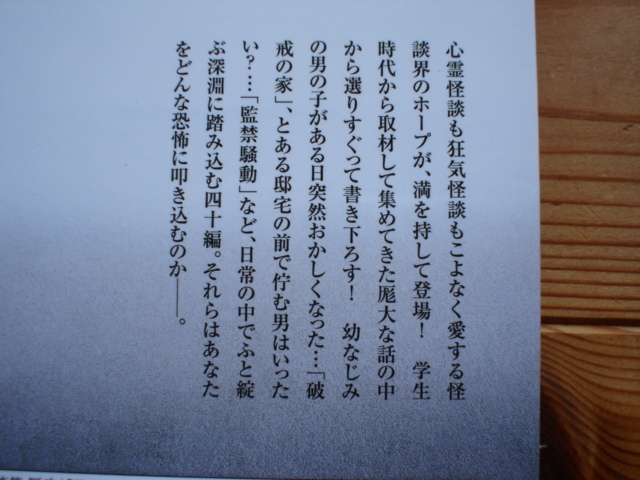 心霊怪談も狂気怪談もこよなく愛する怪
談界のホープが、満を持して登場！　学生
時代から取材して集めてきた厖大な話の中
から選りすぐって書き下ろす！　幼なじみ
の男の子がある日突然おかしくなった…「破
戒の家」、とある邸宅の前で佇む男はいった
い？…「監禁騒動」など、日常の中でふと綻
ぶ深淵に踏み込む四十編。それらはあなた
をどんな恐怖に叩き込むのか――。